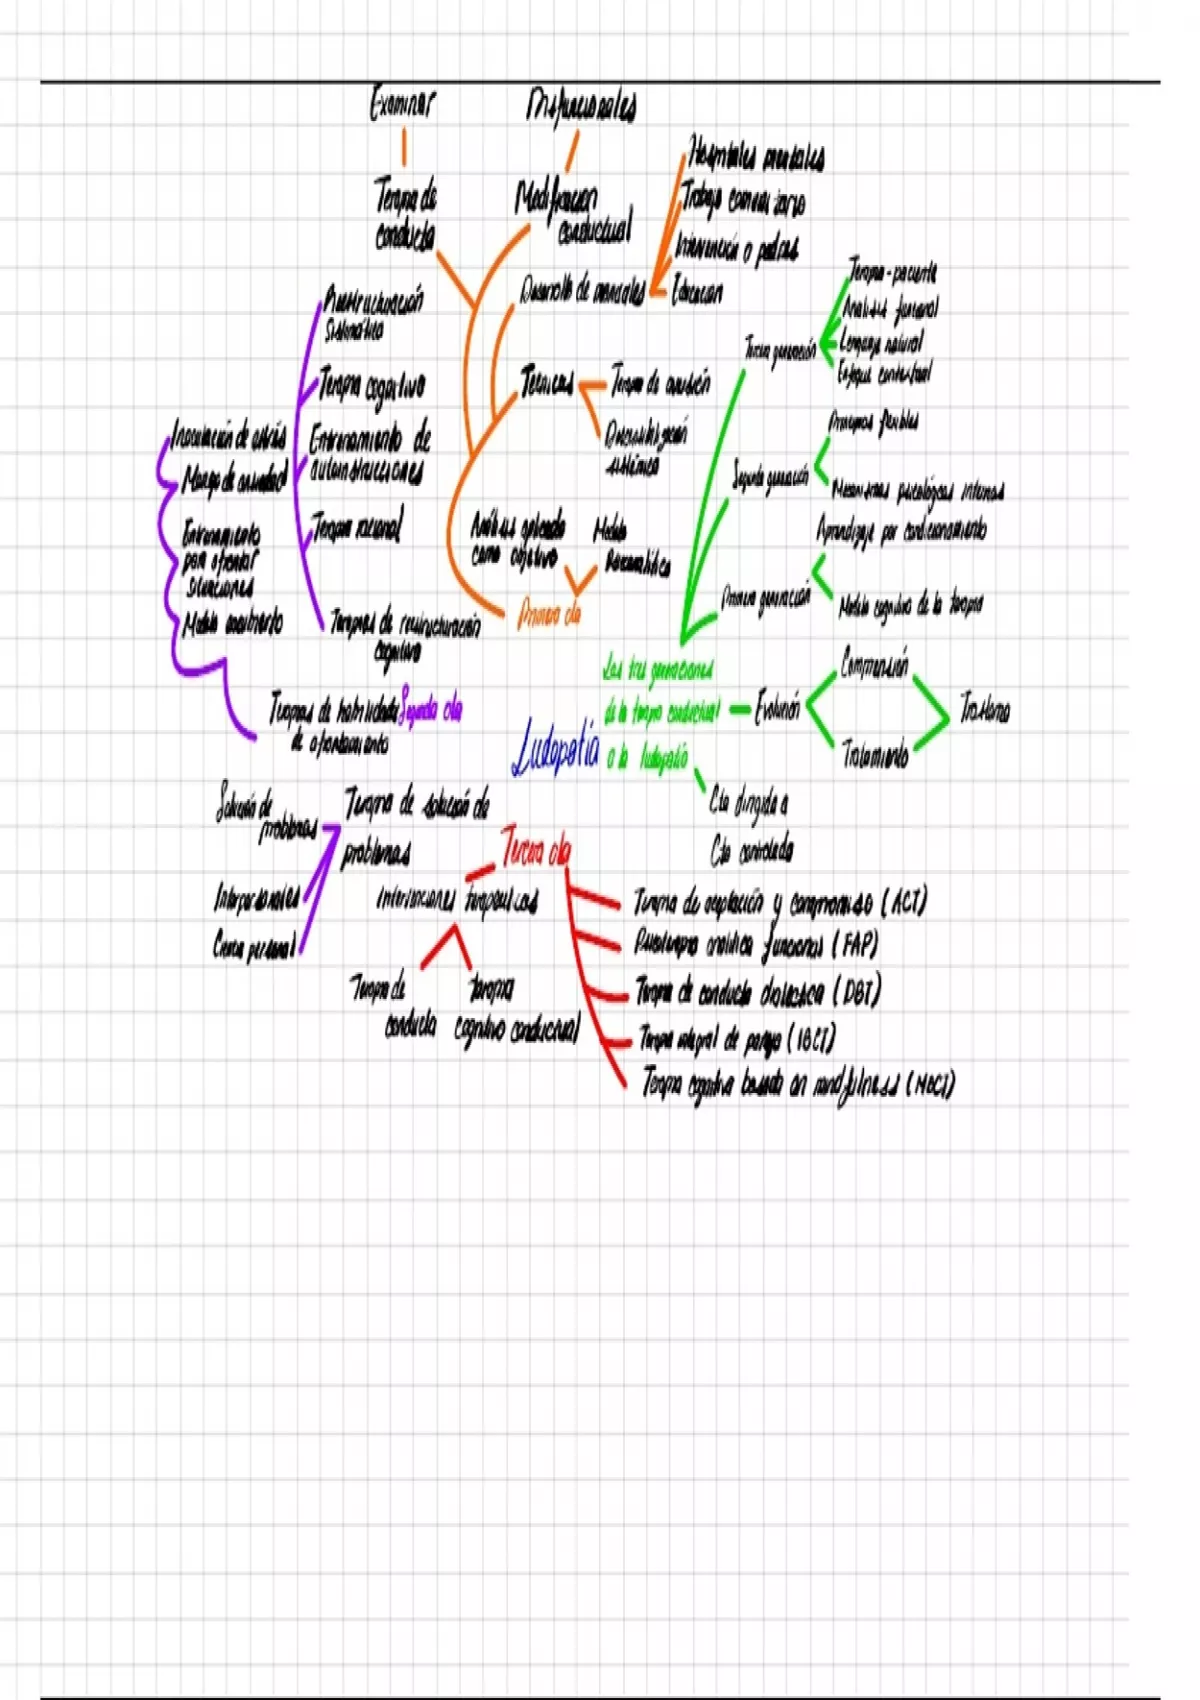 Examinar
Disfuncionales
Terapia de
conducta
Modificación
conductual
Hospitales mentales
Trabajo comunitario
Intervención a padres
Educación
Desarrollo de
Terapia-paciente
Análisis funcional
Lenguaje natural
Enfoque contextual
Tercera generación
Reestructuración
Sistemática
Terapia cognitiva
Entrenamiento de
autoinstrucciones
Terapia racional
Terapias de reestructuración
cognitiva
Técnicas
Terapia de aversión
Desensibilización
sistémica
Principios flexibles
Segunda generación
Mecanismos psicológicos internos
Aprendizaje por condicionamiento
Primera generación
Modelo cognitivo de la terapia
Inoculación de estrés
Manejo de ansiedad
Entrenamiento
para afrontar
situaciones
Modelo
Análisis aplicado
como objetivo
Modelo
Primera ola
Las tres generaciones
de la terapia conductual
a la ludopatía
Evolución
Comprensión
Tratamiento
Trastorno
Terapias de habilidades
de afrontamiento
Segunda ola
Ludopatía
Cta dirigida a
Cta controlada
Solución de
problemas
Terapia de solución de
problemas
Interpersonales
personal
Tercera ola
Intervenciones terapéuticas
Terapia de
conducta
terapia
cognitivo conductual
Terapia de aceptación y compromiso (ACT)
Psicoterapia analítica funcional (FAP)
Terapia de conducta dialéctica (DBT)
Terapia integral de pareja (IBCT)
Terapia cognitiva basada en mindfulness (MBCT)